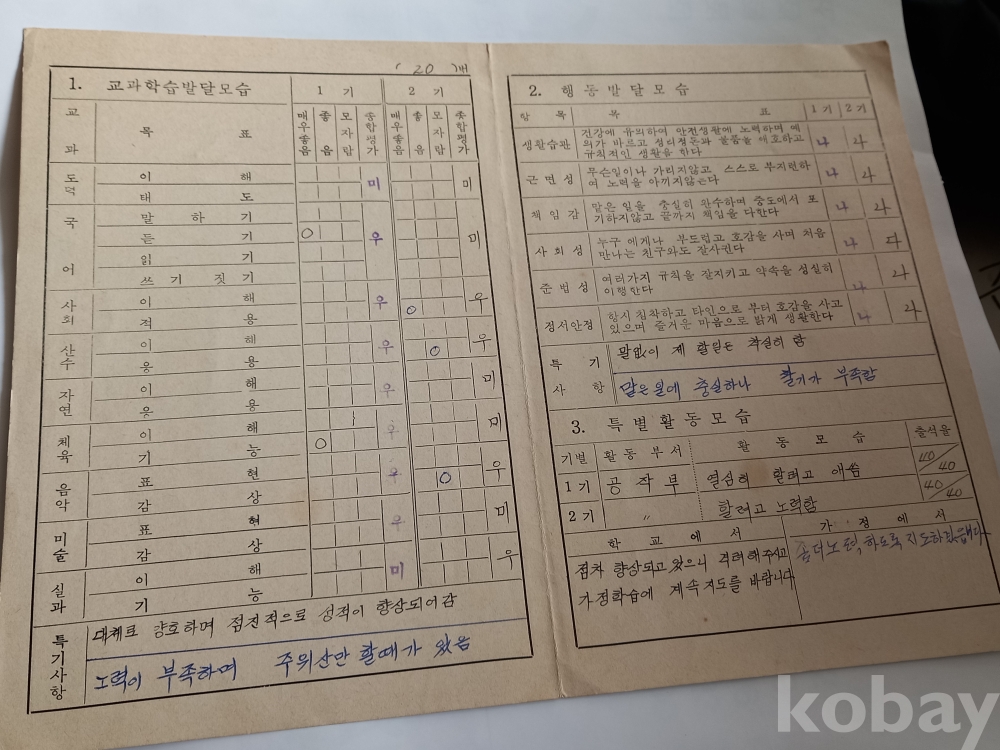 ( 20 )번
1. 교과학습발달모습
1 기
2 기
교 과
목 표
매우좋음 좋음 모자람 종합평가 매우좋음 좋음 모자람 종합평가
도덕
이 해
태 도
미 미
국 어
말 하 기
듣 기
읽 기
쓰 기 짓 기
○ 우 미
사회
이 해
적 용
우 ○ 우
산수
이 해
응 용
우 ○ 우
자연
이 해
응 용
우 미
체육
이 해
기 능
○ 우 미
음악
표 현
감 상
우 ○ 우
미술
표 현
감 상
우 미
실과
이 해
기 능
미 우
특기사항
대체로 양호하며 점진적으로 성적이 향상되어감
노력이 부족하며 주위산만 할때가 있음
2. 행동발달모습
항 목 목 표 1기 2기
생활습관
건강에 유의하여 안전생활에 노력하며 예
의가 바르고 정리정돈과 물품을 애호하고
규칙적인 생활을 한다
나 나
근 면 성
무슨일이나 가리지않고 스스로 부지런하
여 노력을 아끼지않는다
나 나
책 임 감
맡은 일을 충실히 완수하며 중도에서 포
기하지않고 끝까지 책임을 다한다
나 나
사 회 성
누구 에게나 부드럽고 호감을 사며 처음
만나는 친구와도 잘사귄다
나 다
준 법 성
여러가지 규칙을 잘지키고 약속을 성실히
이행한다
나 나
정서안정
항시 침착하고 타인으로 부터 호감을 사고
있으며 즐거운 마음으로 밝게 생활한다
나 나
특 기 사 항
말없이 제 할일은 착실히 함
맡은일에 충실하나 활기가 부족함
3. 특별활동모습
기별 활동부서 활 동 모 습 출석율
1기 공작부 열심히 할려고 애씀 40/40
2기 〃 할려고 노력함 40/40
학 교 에 서
가 정 에 서
점차 향상되고 있으니 격려해주시고
가정학습에 계속 지도를 바랍니다
좀더노력하도록 지도하겠읍니다
kobay